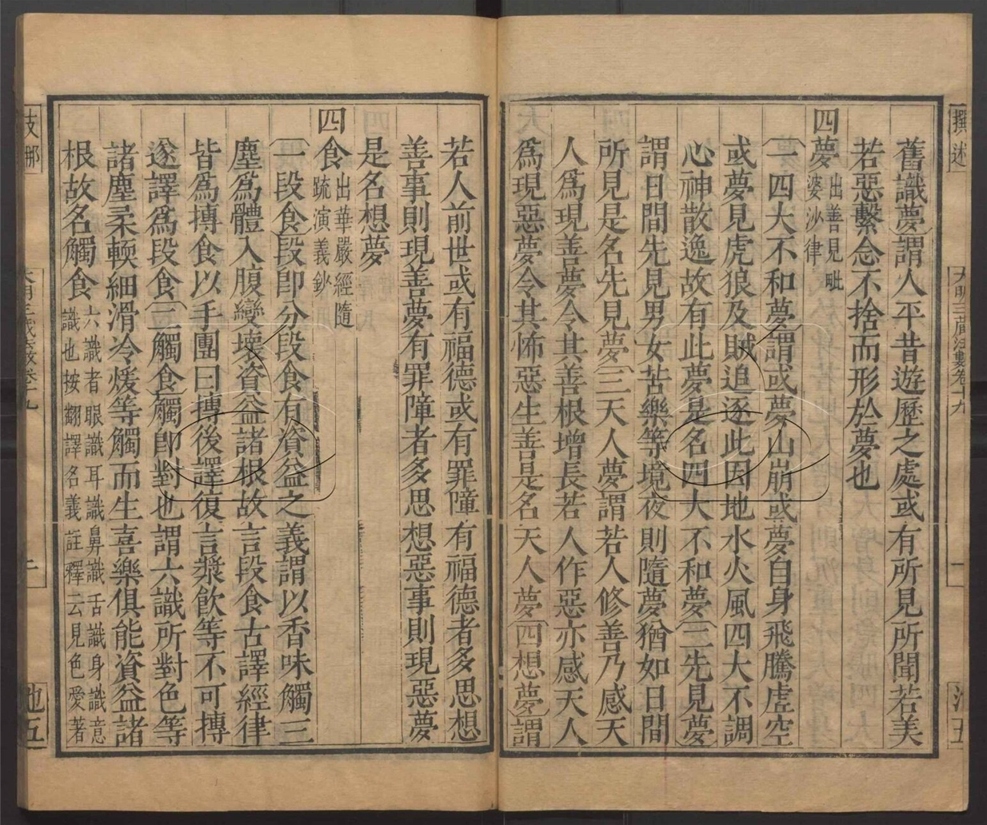 舊識夢謂人平昔遊歷之處或有所見所聞若美
若惡繫念不捨而形於夢也
四夢出善見毗婆沙律
一四大不和夢謂或夢山崩或夢自身飛騰虛空
或夢見虎狼及賊追逐此因地水火風四大不調
心神散逸故有此夢是名四大不和夢二先見夢
謂日間先見男女苦樂等境夜則隨夢猶如日間
所見是名先見夢三天人夢謂若人修善乃感天
人爲現善夢令其善根增長若人作惡亦感天人
爲現惡夢令其怖惡生善是名天人夢四想夢謂
若人前世或有福德或有罪障有福德者多思想
善事則現善夢有罪障者多思想惡事則現惡夢
是名想夢
四食出華嚴經隨疏演義鈔
一段食段卽分段食有資益之義謂以香味觸三
塵爲體入腹變壞資益諸根故言段食古譯經律
皆爲摶食以手團曰摶後譯復言漿飲等不可摶
遂譯爲段食二觸食觸卽對也謂六識所對色等
諸塵柔輭細滑冷煖等觸而生喜樂俱能資益諸
根故名觸食六識者眼識耳識鼻識舌識身識意識也按翻譯名義註釋云見色愛著
撰述
大明三藏法數卷十九
一
支那
二
池五